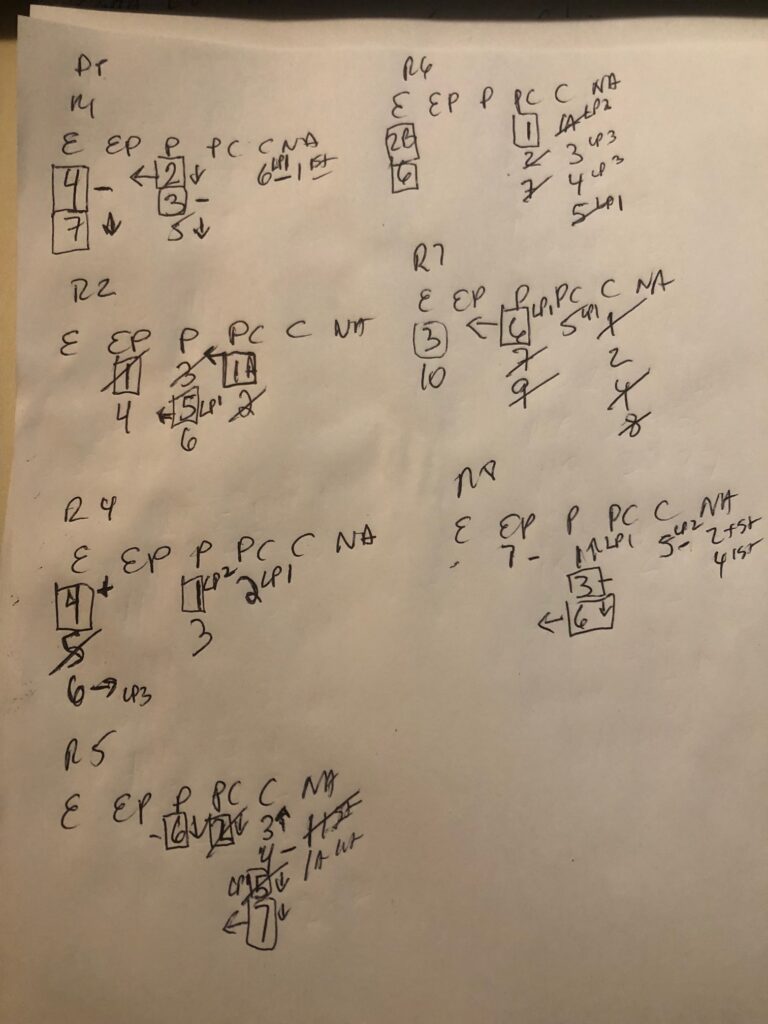 R1
E EP P PC C NA
4 – ← 2 ↓ 6 LP1 – 1 1ST –
7 ↓ 3 –
5 ↓
R2
E EP P PC C NA
1 3 ← 1A
4 ← 5 LP1 2
6
R4
E EP P PC C NA
4 + 1 LP2 2 LP1
5 3
6 → LP3
R5
E EP P PC C NA
– 6 ↓ 2 ↓ 3 ↑ 1 1ST
4 – 1A
LP1 5 ↓
← 7 ↓
R6
E EP P PC C NA
2B 1 1A LP2
6 2 3 LP3
7 4 LP3
5 LP1
R7
E EP P PC C NA
3 ← 6 LP1 5 LP1 1
10 7 2
9 4
8
R8
E EP P PC C NA
7 – 1 ↑ LP1 5 LP2 – 2 FST
3 + 4 1ST
← 6 ↓